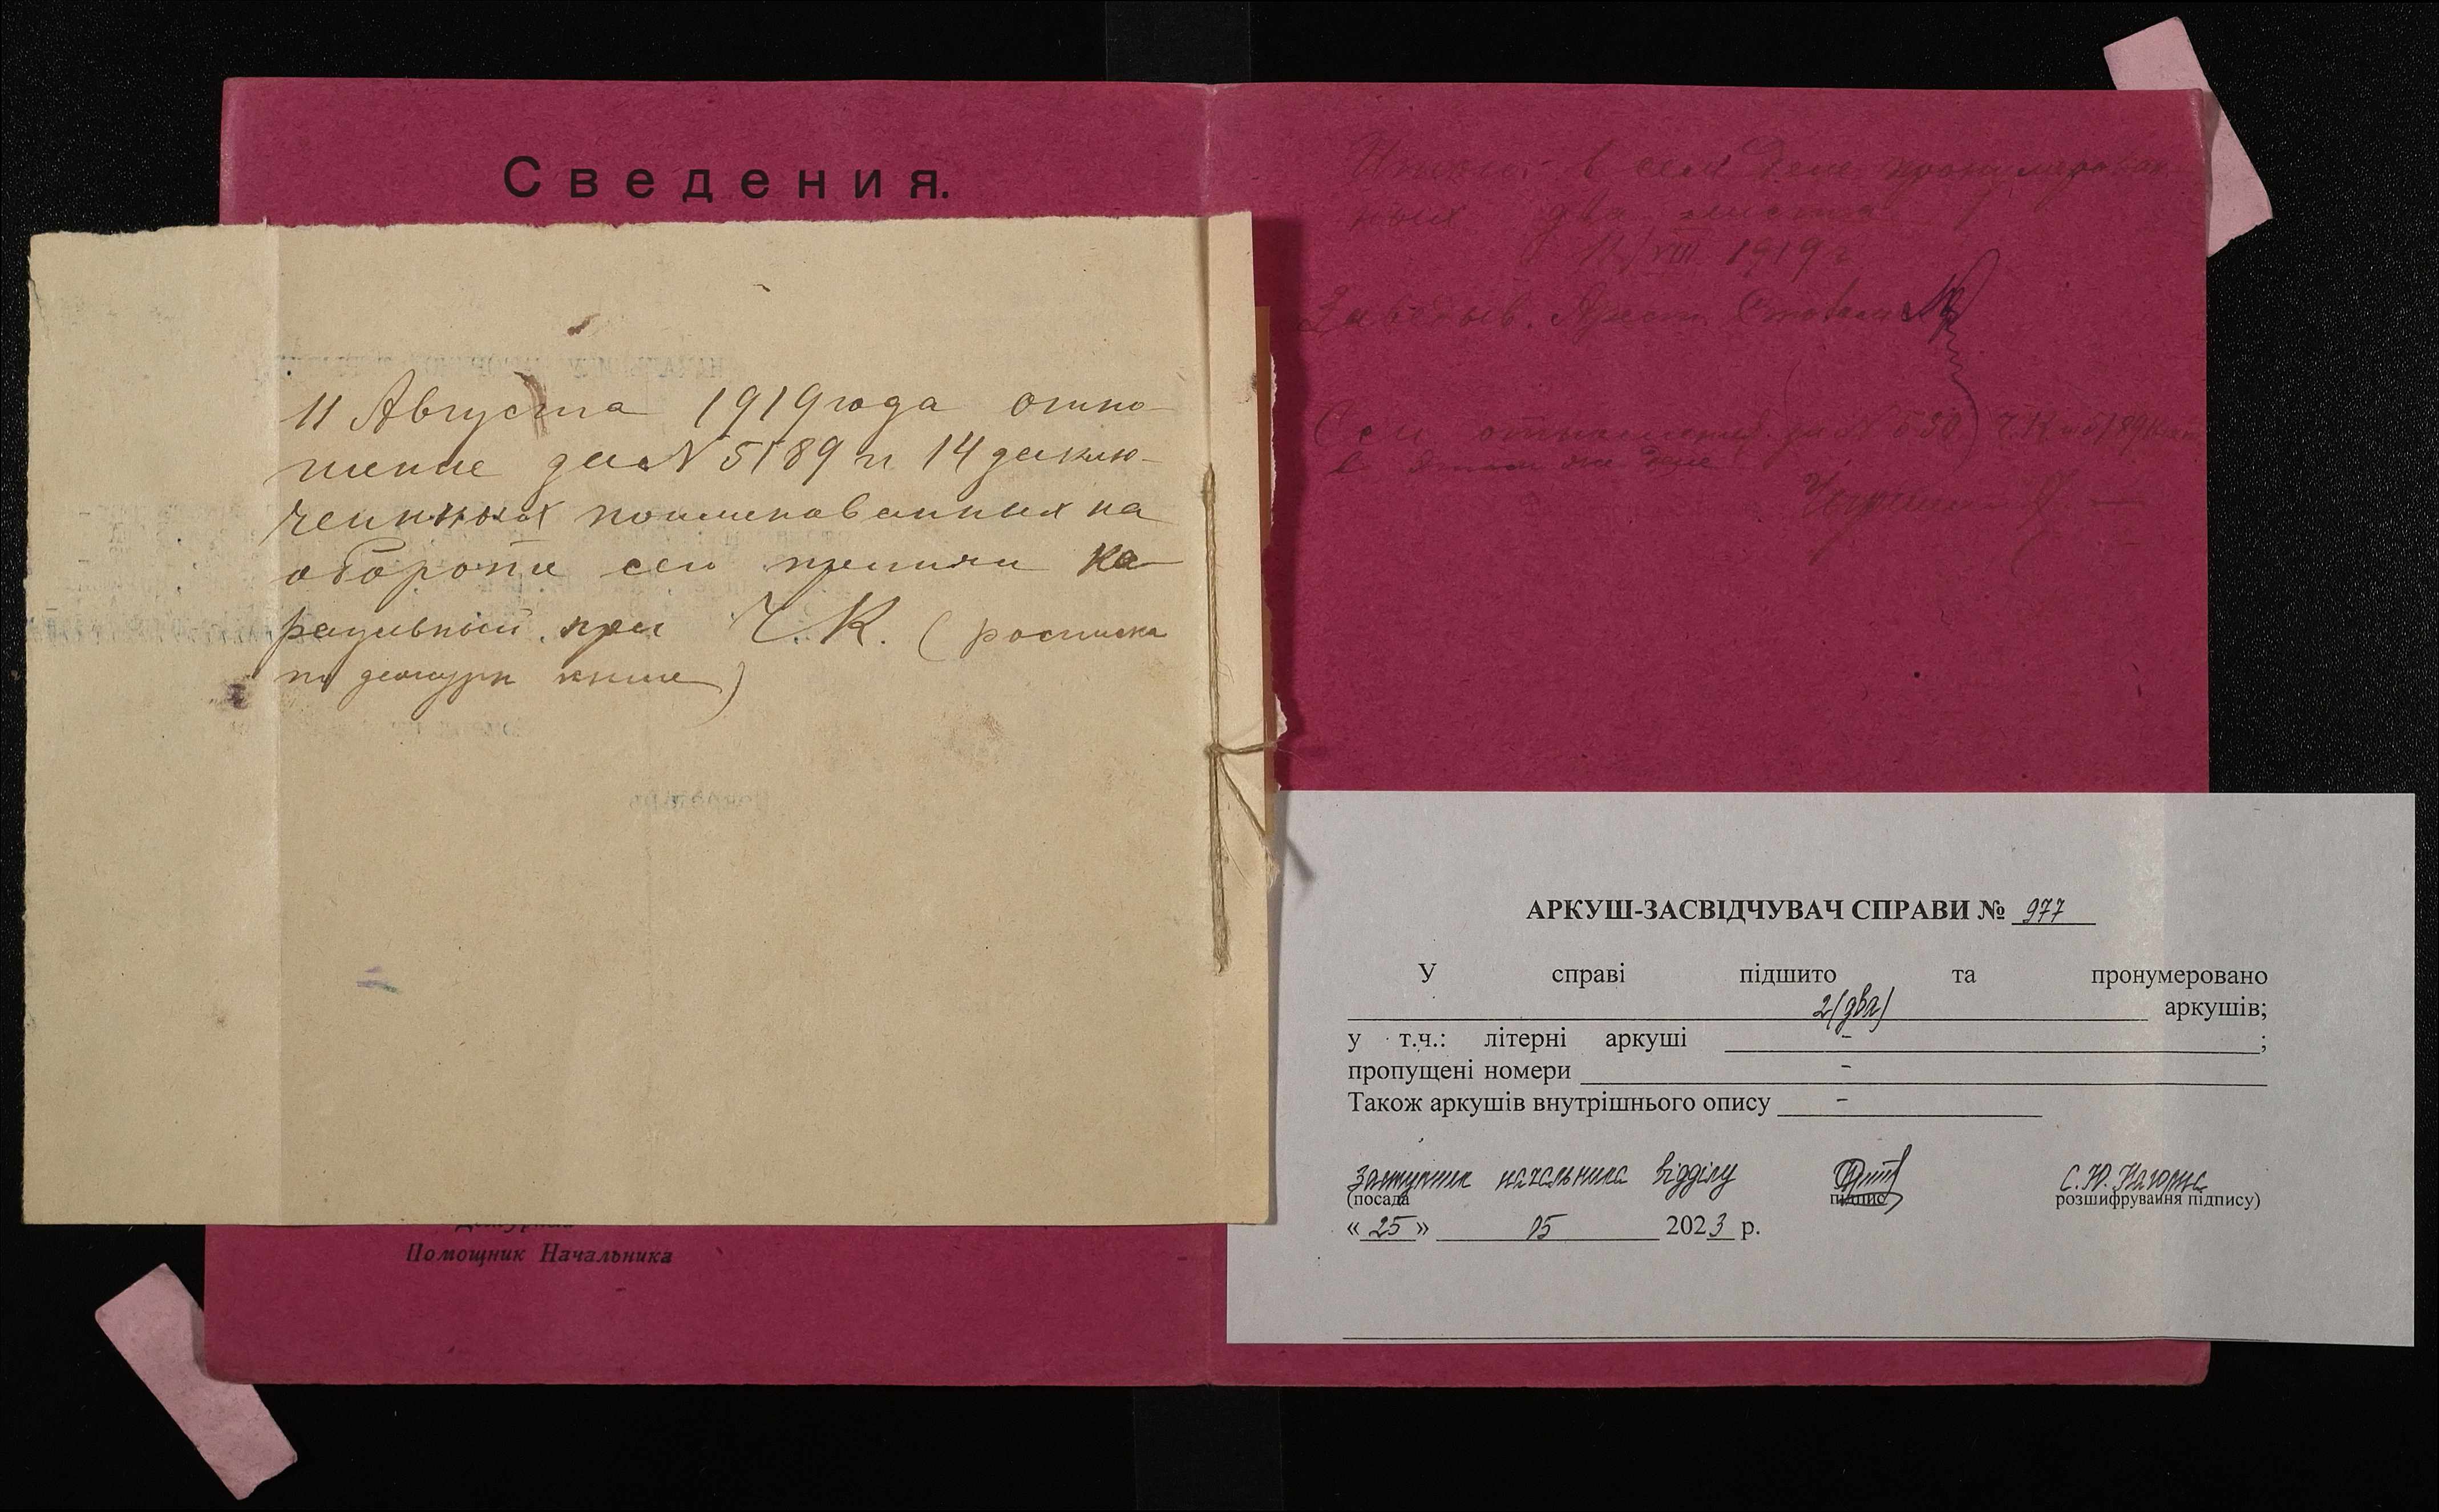 Сведения.
11 Августа 1919 года отно-
шение за № 5189 и 14 заклю-
ченных поименованных на
обороте сего приняли ка-
раульный при Ч.К. (росписка
в дежурн книге)
Помощник Начальника
в сем деле пронумерован-
ных два листа
11/VIII 1919 г
Заведыв. Арест.
в этом же деле
АРКУШ-ЗАСВІДЧУВАЧ СПРАВИ № 977
У справі підшито та пронумеровано
2 (два) аркушів;
у т.ч.: літерні аркуші - ;
пропущені номери -
Також аркушів внутрішнього опису -
Заступник начальника відділу С.Ю. Нагорна
(посада підпис розшифрування підпису)
« 25 » 05 2023 р.